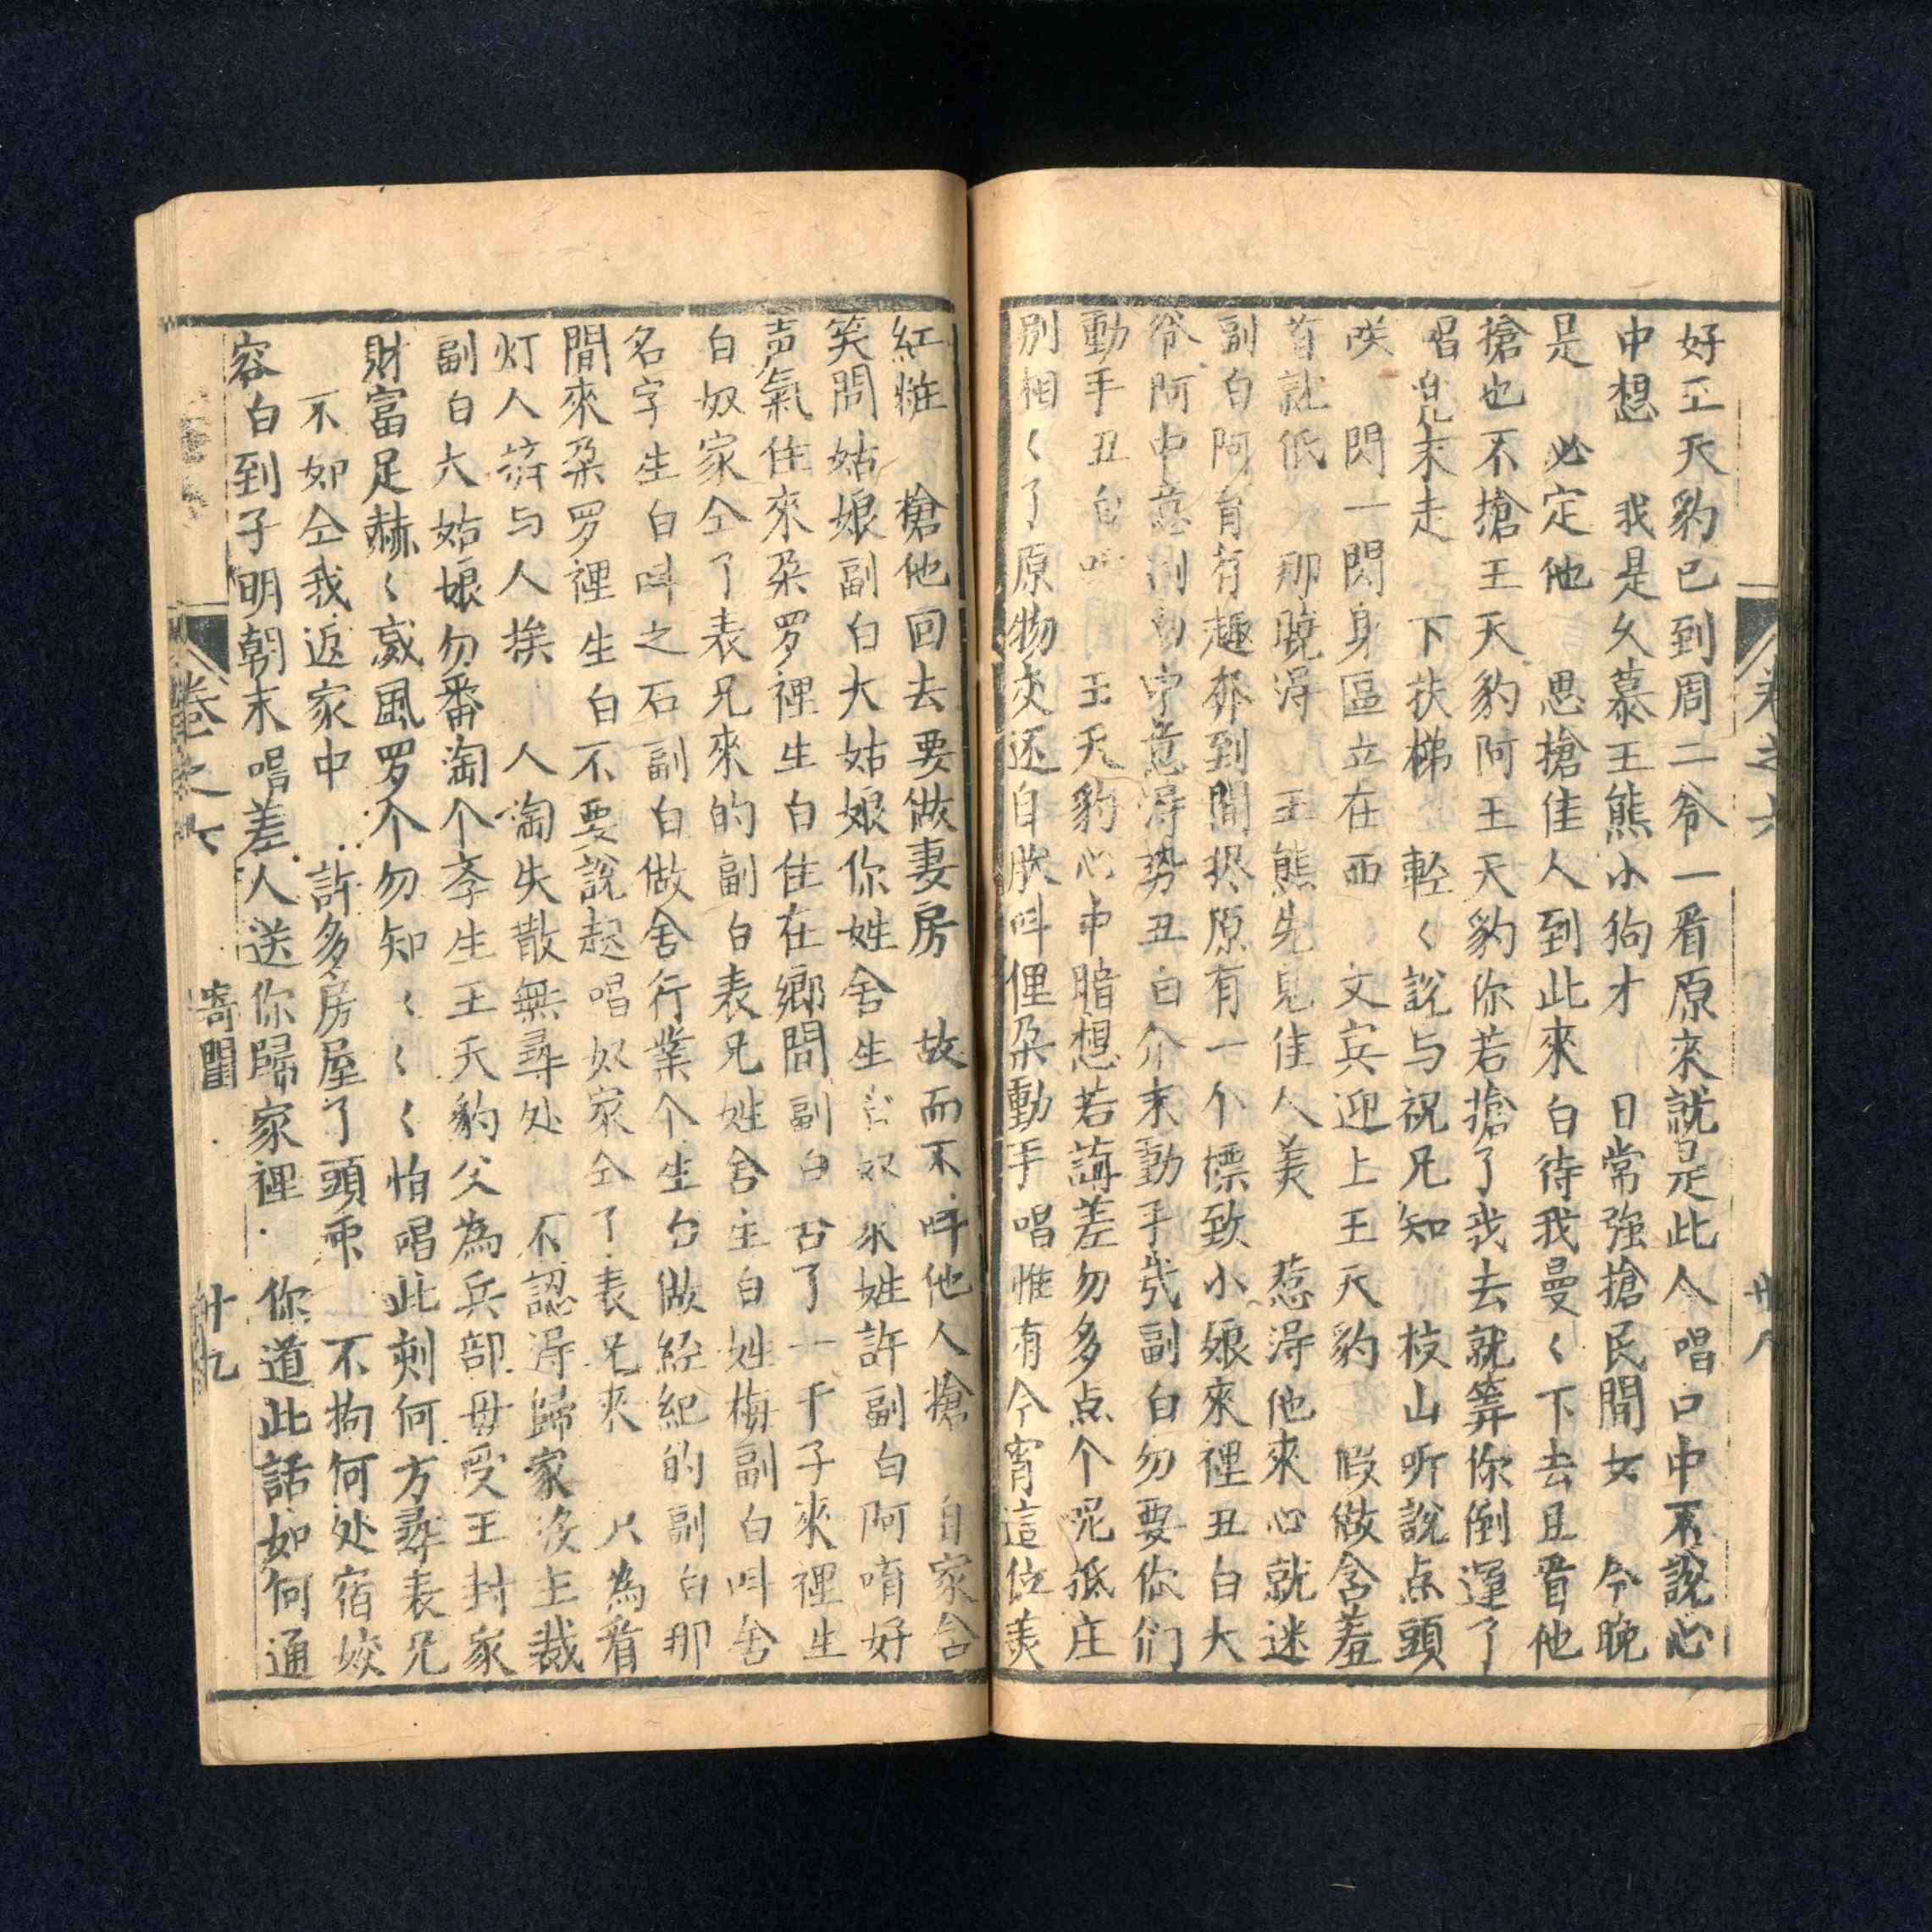 好王天豹已到周二爷一看原來就是此人唱口中不說心
中想 我是久慕王熊小狗才 日常强搶民間女 今晚
是 必定他 思搶佳人到此來白待我曼〱下去且看他
搶也不搶王天豹阿王天豹你若搶了我去就筭你倒運了
唱 末走 下扶梯 輕〱說与祝兄知 枝山听說点頭
咲 閃一閃身區立在西〱 文宾迎上王天豹 假做含羞
首 低 那曉淂 王熊先見佳人美 惹淂他來心就迷
副白阿育有趣 到間 原有一个摽致小娘來裡丑白大
爷阿中意 中意淂势丑白介末動手 副白勿要你们
動手丑白 王天豹心中暗想若講差勿多点个呢抵庄
別相〱了原物交还自 呌俚朶動手唱惟有今宵這位美
紅粧 搶他回去要做妻房 故而不呌他人搶 自家含
笑問姑娘副白大姑娘你姓舍生 奴姓許副白阿唷好
声氣住來朶罗裡生白住在鄉間副白 了一千子來裡生
白奴家仝了表兄來的副白表兄姓舍生白姓梅副白呌舍
名字生白呌之石副白做舍行業个生白做經紀的副白那
間來朶罗裡生白不要說起唱奴家仝了表兄來 只為看
灯人 与人挨 人淘失散無尋处 不認淂歸家沒主裁
副白大姑娘勿番淘个孝生王天豹父為兵部毋受王封家
財富足赫〱威風罗个勿知〱〱〱怕唱此刻何方尋表兄
不如仝我返家中 許多房屋了頭乖 不拘何处宿姣
容白到子明朝末唱差人送你歸家裡 你道此話如何通
卷之六 廿八
卷之六 寄閨 廿九